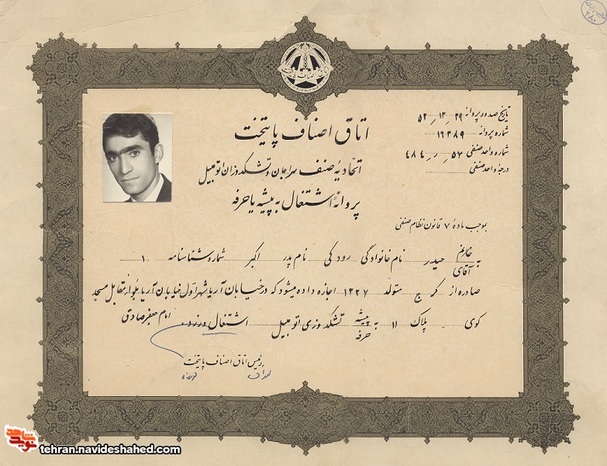 تاریخ صدور پروانه ۵۲٫۱۲٫۲۹
شماره پروانه ۱۶۳۸۹
شماره واحد صنفی ۴۸۴٫ر٫۵۷
درجه واحد صنفی
اتاق اصناف پایتخت
اتحادیهٔ صنف سراجان و تشکدوزان اتومبیل
پروانهٔ اشتغال به پیشه یا حرفه
بموجب مادهٔ ۷ قانون نظام صنفی
به خانم آقای حیدر نام خانوادگی رودکی نام پدر اکبر شماره شناسنامه ۱
صادره از کرج متولد ۱۳۲۷ اجازه داده میشود که در خیابان آریاشهر اول خیابان آریا بلوار مقابل مسجد
امام جعفر صادق
کوی - پلاک ۱۱ به پیشه حرفه تشکدوزی اتومبیل اشتغال ورزد
رئیس اتاق اصناف پایتخت
شاهد نوید
tehran.navideshahed.com